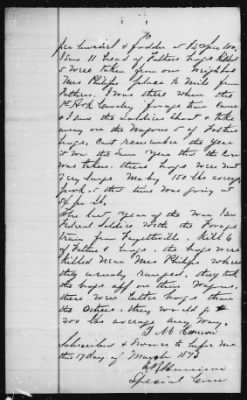 per hundred & fodder at $
I saw 11 head of Fathers hogs killed
& were taken from our neighbor
Mrs Philips place ½ mile from
Fathers. I was there when the
1st Ark Cavalry forage train came
& I saw the soldiers shoot & take
away on the wagons 5 of Fathers
hogs. Cant remember the year
it was the same year that the corn
was taken. these hogs were not
very large. Maby 150 lbs average
pork. at that time was going at
5¢ per lb.
The last year of the war I saw
Federal Soldiers with the forage
train from Fayetteville. Kill 6
of Fathers hogs. the hogs were
killed near Mrs Philips where
they usualy ranged. they took
the hogs off in their wagons.
these were better hogs than
the others. they would go
200 lbs average any way.
J. M.
Subscribed & sworn to before me
this 17 day of March 1873
Harrison
Special Com